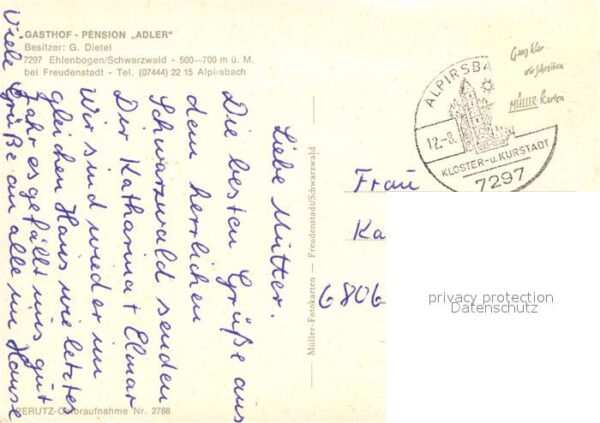 GASTHOF - PENSION „ADLER"
Besitzer: G. Dietel
7297 Ehlenbogen/Schwarzwald - 500—700 m ü. M.
bei Freudenstadt - Tel. (07444) 22 15 Alpirsbach
Liebe Mutter.
Die besten Grüße aus
dem herrlichen
Schwarzwald senden
Dir Katharina + Elmar
Wir sind wieder im
gleichen Haus wie letztes
Jahr es gefällt uns gut
Viele Grüße an alle im Hause
PERUTZ-Coloraufnahme Nr. 2788
Müller-Fotokarten — Freudenstadt/Schwarzwald
Ganz klar
wir schreiben
MÜLLER-Karten
ALPIRSBA
12.-8.
KLOSTER-u. KURSTADT
7297
Frau
Ka
6806
privacy protection
Datenschutz